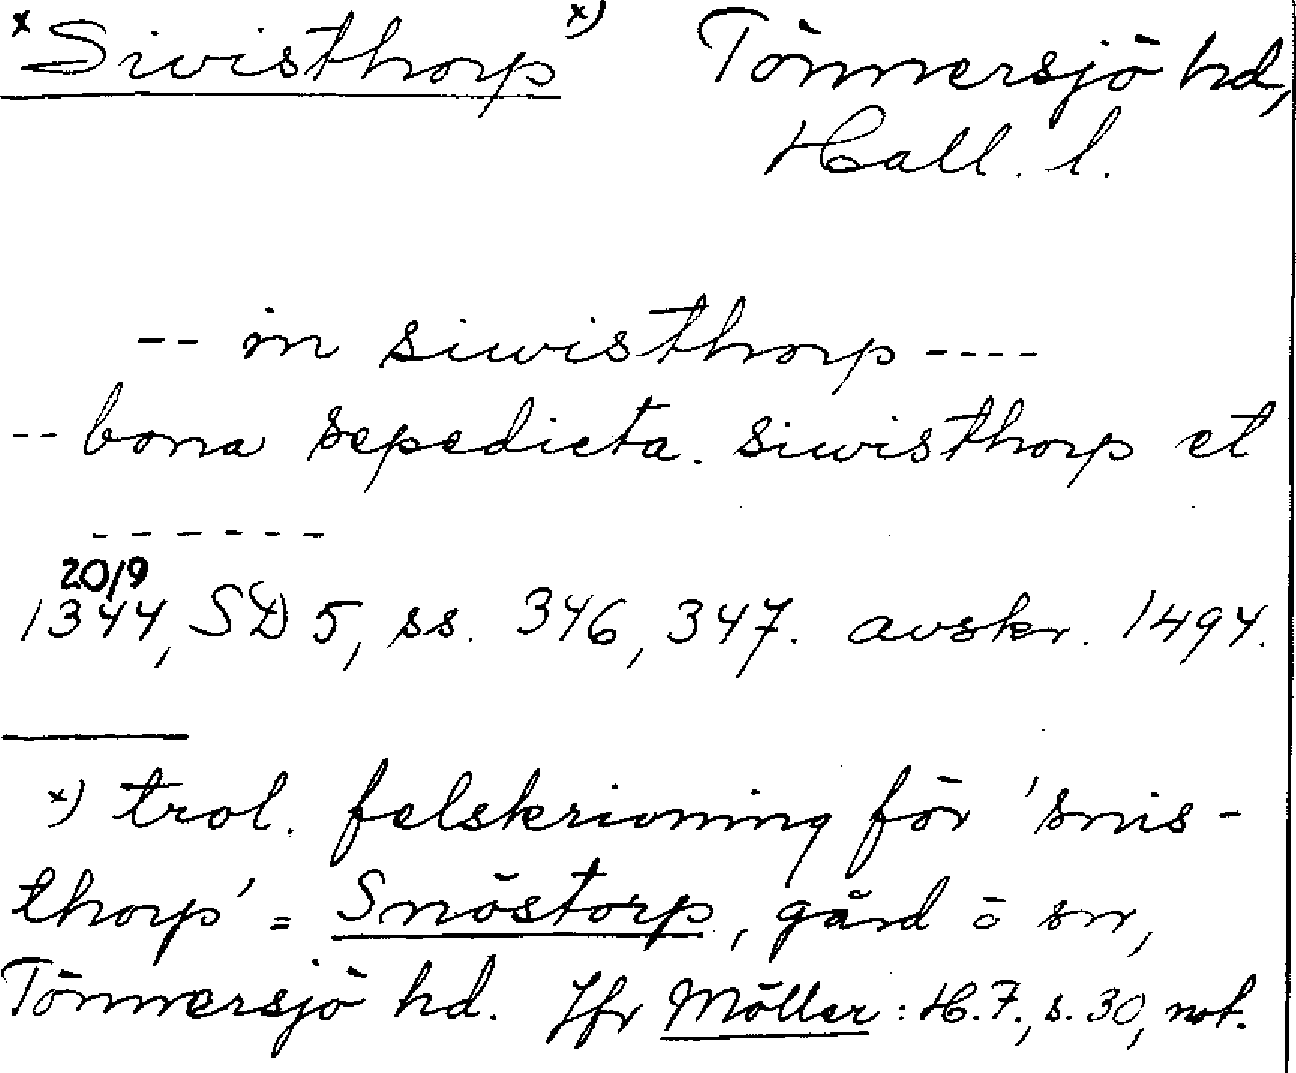 x Siwisthorp x) Tönnersjö hd,
Hall. l.
-- in siwisthorp ----
-- bona sepedicta. siwisthorp et
-------
20/9
1344, SD 5, ss. 346, 347. avskr. 1494.
x) trol. felskrivning för 'snis-
thorp' = Snöstorp, gård o sn,
Tönnersjö hd. Jfr Möller: H.F., s. 30, not.